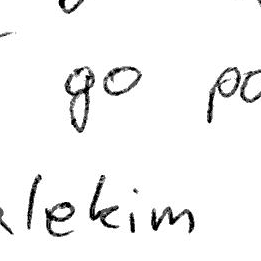 go po
lekim